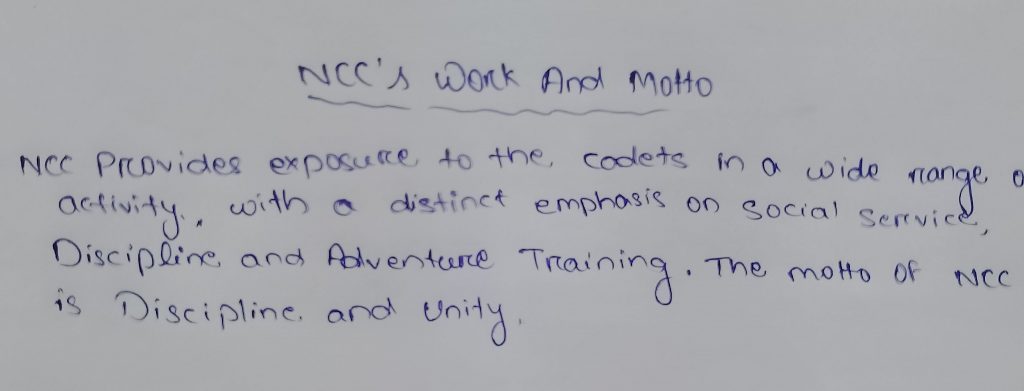 NCC's Work And Motto
NCC Provides exposure to the cadets in a wide range
activity, with a distinct emphasis on Social Service,
Discipline and Adventure Training. The motto of NCC
is Discipline and Unity.